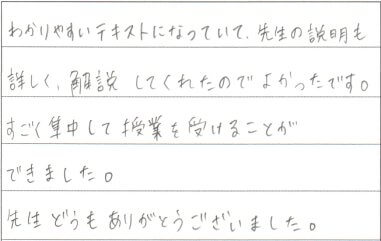 わかりやすいテキストになっていて、先生の説明も
詳しく、解説してくれたのでよかったです。
すごく集中して授業を受けることが
できました。
先生どうもありがとうございました。